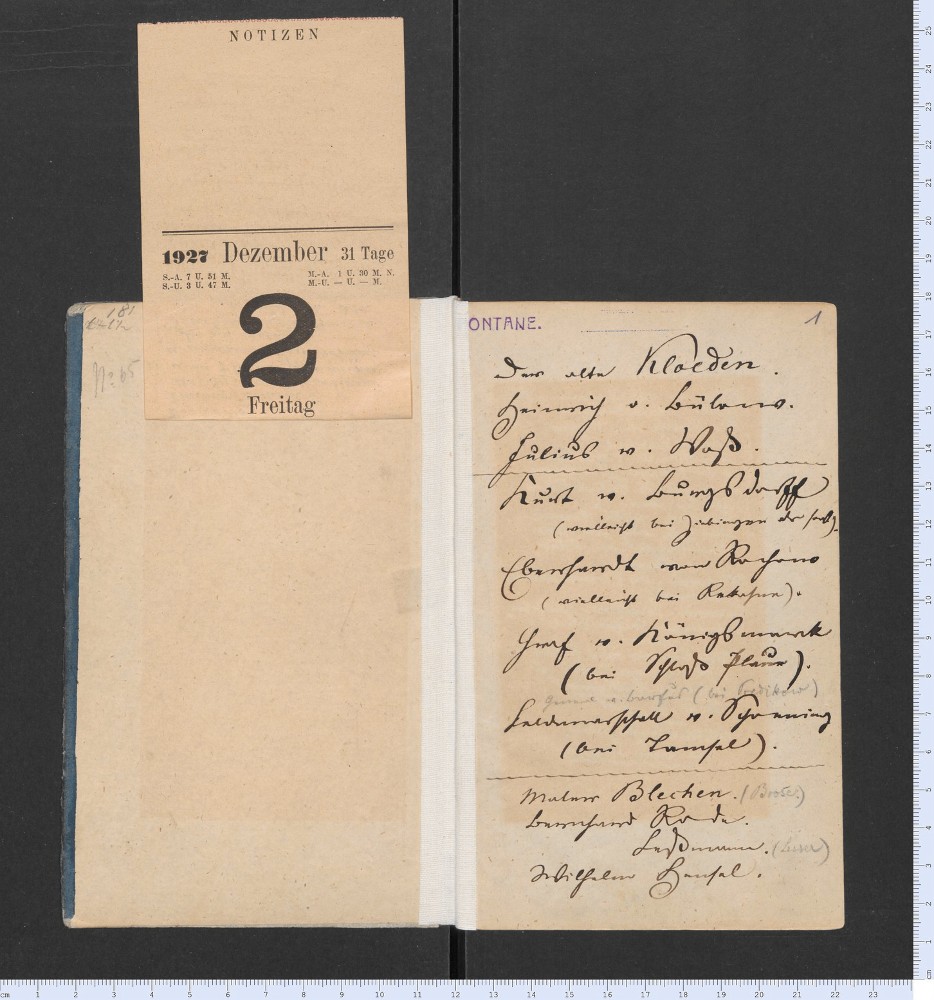 NOTIZEN
1927 Dezember 31 Tage
S.-A. 7 U. 51 M. M.-A. 1 U. 30 M. N.
S.-U. 3 U. 47 M. M.-U. — U. — M.
2
Freitag
181
No: 65
ONTANE.
1
Der alte Kloeden.
Heinrich v. Bülow.
Julius v. Voß.
Kurt v. Burgsdorff
(vielleicht bei Ziebingen
Eberhardt von Rochow
(vielleicht bei Rekahne).
Graf v. Königsmarck
(bei Schloß Plaue).
General v. Barfus (bei Predikow)
Feldmarschall v. Schoening
(bei Tamsel).
Maler Blechen.
Bernhard Rode.
Leßmann.
Wilhelm Hensel.